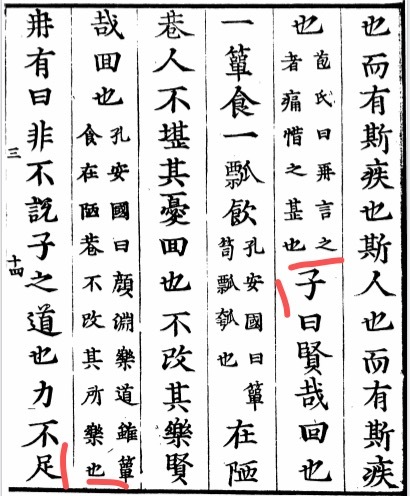 也而有斯疾也斯人也而有斯疾
也
苞氏曰再言之
者痛惜之甚也
子曰賢哉回也
一簞食一瓢飲
孔安國曰簞
笥瓢瓠也
在陋
巷人不堪其憂回也不改其樂賢
哉回也
孔安國曰顏淵樂道雖簞
食在陋巷不改其所樂也
冉有曰非不說子之道也力不足
三
十四